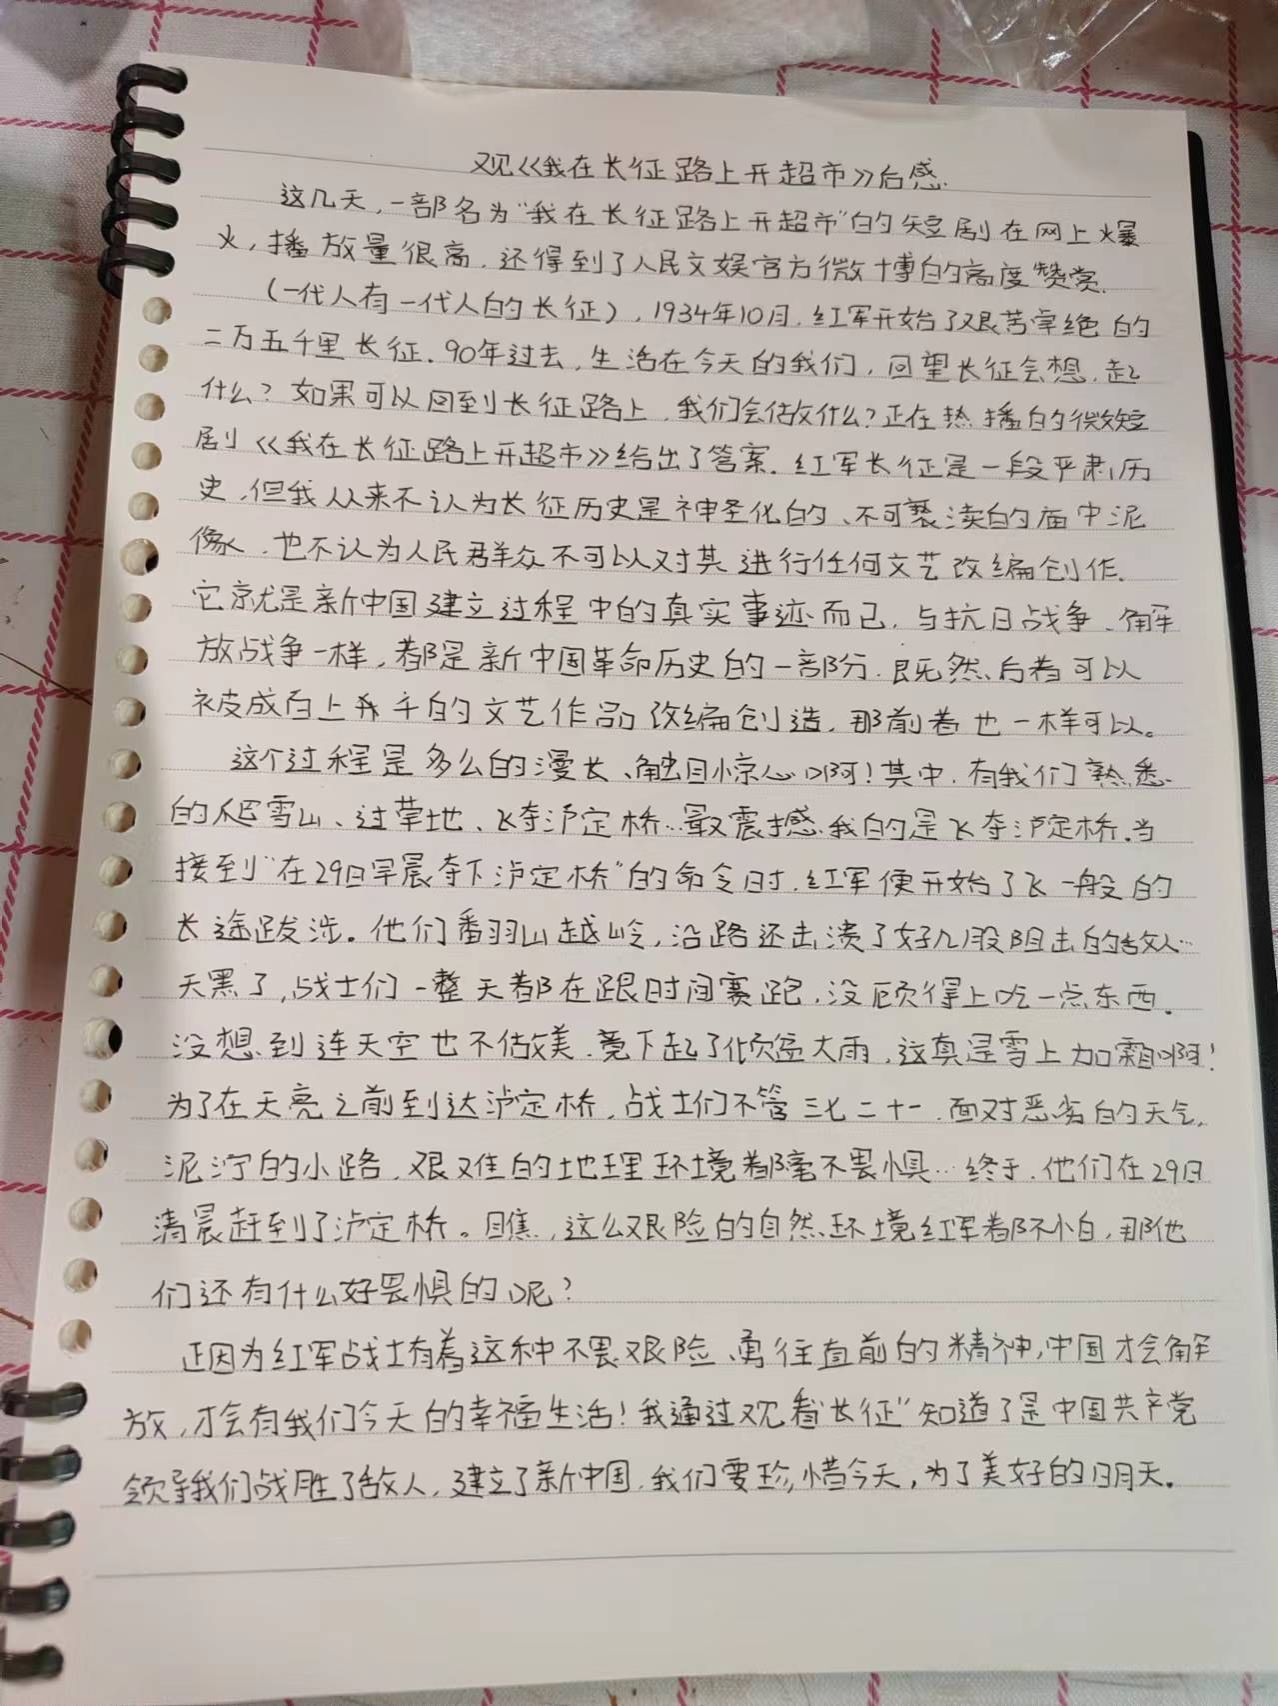 观《我在长征路上开超市》后感.
这几天,一部名为"我在长征路上开超市"的短剧在网上爆
火,播放量很高,还得到了人民文娱官方微博的高度赞赏.
(一代人有一代人的长征),1934年10月,红军开始了艰苦卓绝的
二万五千里长征.90年过去,生活在今天的我们,回望长征会想起
什么?如果可以回到长征路上,我们会做什么?正在热播的微短
剧《我在长征路上开超市》给出了答案.红军长征是一段严肃历
史,但我从来不认为长征历史是神圣化的、不可亵渎的庙中泥
像,也不认为人民群众不可以对其进行任何文艺改编创作.
它就是新中国建立过程中的真实事迹而已,与抗日战争、解
放战争一样,都是新中国革命历史的一部分.既然后者可以
被成百上千的文艺作品改编创造,那前者也一样可以。
这个过程是多么的漫长、触目惊心啊!其中,有我们熟悉
的爬雪山、过草地、飞夺泸定桥…最震撼我的是飞夺泸定桥.当
接到"在29日早晨夺下泸定桥"的命令时,红军便开始了飞一般的
长途跋涉。他们翻山越岭,沿路还击溃了好几股阻击的敌人…
天黑了,战士们一整天都在跟时间赛跑,没顾得上吃一点东西.
没想到连天空也不做美,竟下起了倾盆大雨,这真是雪上加霜啊!
为了在天亮之前到达泸定桥,战士们不管三七二十一,面对恶劣的天气,
泥泞的小路,艰难的地理环境都毫不畏惧…终于,他们在29日
清晨赶到了泸定桥。瞧,这么艰险的自然环境红军都不怕,那他
们还有什么好畏惧的呢?
正因为红军战士有着这种不畏艰险、勇往直前的精神,中国才会解
放,才会有我们今天的幸福生活!我通过观看"长征"知道了是中国共产党
领导我们战胜了敌人,建立了新中国,我们要珍惜今天,为了美好的明天.